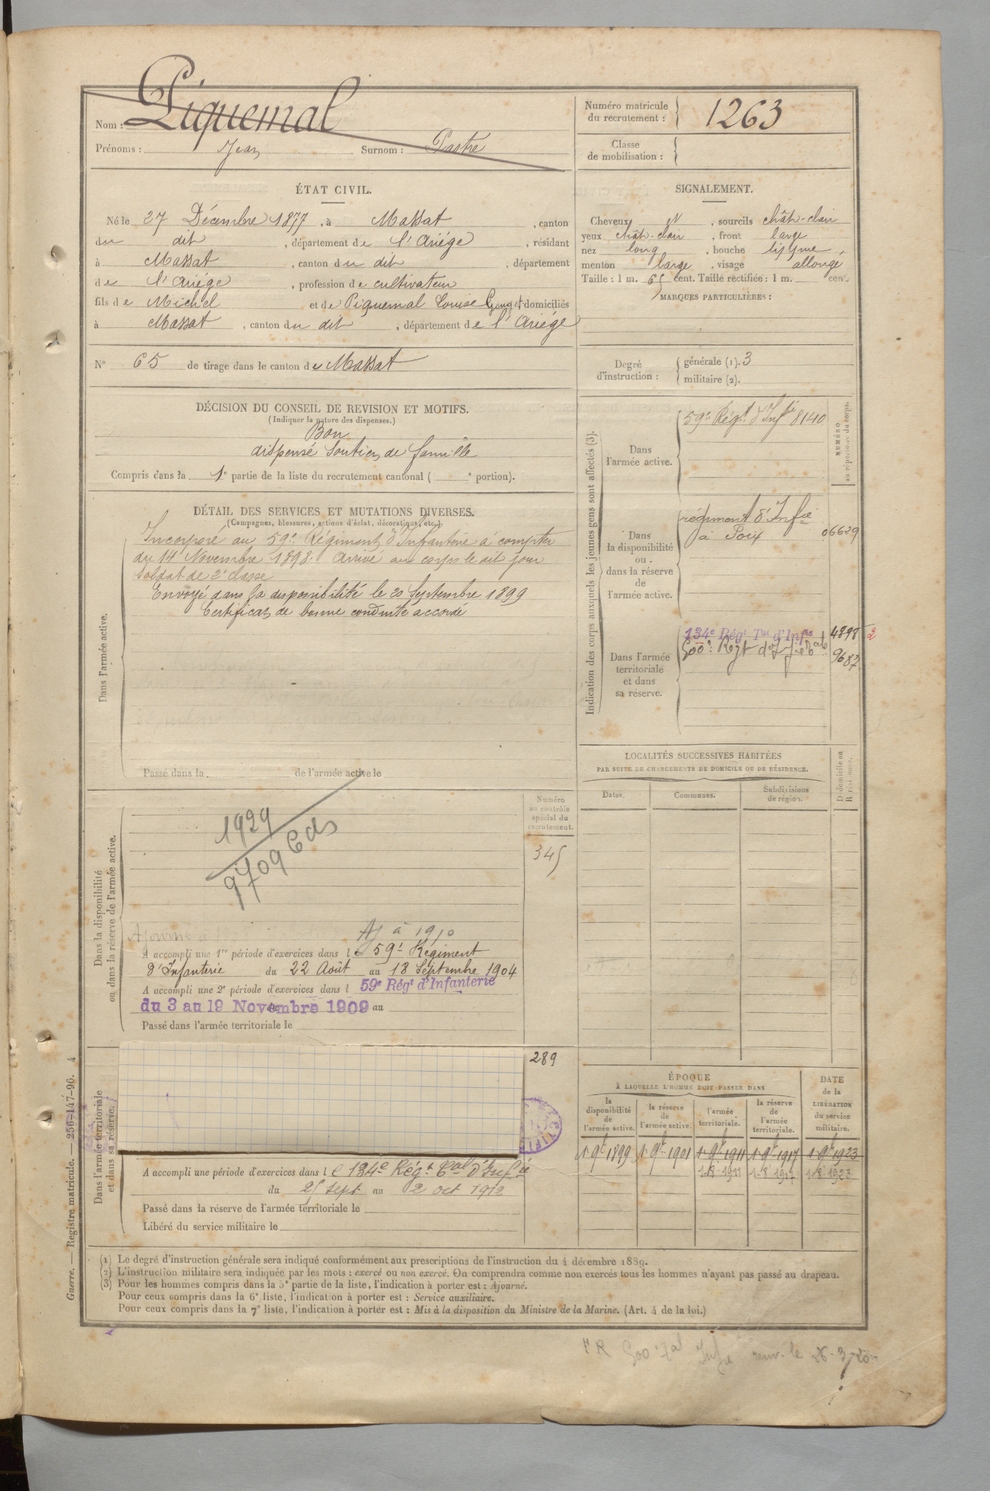 Nom : Piquemal
Prénoms : Jean Surnom : Pastre
Numéro matricule
du recrutement : 1263
Classe
de mobilisation :
ÉTAT CIVIL.
Né le 27 Décembre 1877, à Massat, canton
du dit, département de l'Ariége, résidant
à Massat, canton du dit, département
de l'Ariége, profession de cultivateur
fils de Michel et de Piquemal Louise domiciliés
à Massat, canton du dit, département de l'Ariége
N° 65 de tirage dans le canton de Massat
SIGNALEMENT.
Cheveux N, sourcils chât-clair
yeux chât-clair, front large
nez long, bouche
menton large, visage allongé
Taille : 1 m. 65 cent. Taille rectifiée : 1 m. cent.
MARQUES PARTICULIÈRES :
Degré
d'instruction :
générale (1). 3
militaire (2).
DÉCISION DU CONSEIL DE REVISION ET MOTIFS.
(Indiquer la nature des dispenses.)
Bon
dispensé Soutien de famille
Compris dans la 1e partie de la liste du recrutement cantonal ( e portion).
DÉTAIL DES SERVICES ET MUTATIONS DIVERSES.
(Campagnes, blessures, actions d'éclat, décorations, etc.)
Dans l'armée active.
Incorporé au 59e Régiment d'Infanterie à compter
du 14 Novembre 1898. Arrivé au corps le dit jour
soldat de 2e classe
Envoyé dans la disponibilité le 20 Septembre 1899
Certificat de bonne conduite accordé
Passé dans la de l'armée active le
Indication des corps auxquels les jeunes gens sont affectés (3).
NUMÉRO
au répertoire du corps.
Dans
l'armée active.
59e Régt d'Infie 8140
Dans
la disponibilité
ou
dans la réserve
de
l'armée active.
régiment d'Infie
à Foix 06629
Dans l'armée
territoriale
et dans
sa réserve.
134e Régt Tal d'Infie 4898 2
9687
LOCALITÉS SUCCESSIVES HABITÉES
PAR SUITE DE CHANGEMENTS DE DOMICILE OU DE RÉSIDENCE.
Dates.
Communes.
Subdivisions
de région.
D. domicile ou
R. résidence.
Dans la disponibilité
ou dans la réserve de l'armée active.
Numéro
au contrôle
spécial du
recrutement.
345
1929
9709 Cds
Aj à 1910
A accompli une 1re période d'exercices dans le 59e Régiment
d'Infanterie du 22 Août au 18 Septembre 1904
A accompli une 2e période d'exercices dans l 59e Régt d'Infanterie
du 3 au 19 Novembre 1909 au
Passé dans l'armée territoriale le
Dans l'armée territoriale
et dans sa réserve.
289
A accompli une période d'exercices dans le 134e Régt Tal d'Infie
du 25 sept au 2 oct 1912
Passé dans la réserve de l'armée territoriale le
Libéré du service militaire le
ÉPOQUE
À LAQUELLE L'HOMME DOIT PASSER DANS
la
disponibilité
de
l'armée active.
la réserve
de
l'armée active.
l'armée
territoriale.
la réserve
de
l'armée
territoriale.
DATE
de la
LIBÉRATION
du service
militaire.
1 9e 1899 1 9e 1901 1 9e 1911 1 9e 1917 1 9e 1923
Guerre. — Registre matricule. — 256-147-96.
(1) Le degré d'instruction générale sera indiqué conformément aux prescriptions de l'instruction du 4 décembre 1889.
(2) L'instruction militaire sera indiquée par les mots : exercé ou non exercé. On comprendra comme non exercés tous les hommes n'ayant pas passé au drapeau.
(3) Pour les hommes compris dans la 5e partie de la liste, l'indication à porter est : Ajourné.
Pour ceux compris dans la 6e liste, l'indication à porter est : Service auxiliaire.
Pour ceux compris dans la 7e liste, l'indication à porter est : Mis à la disposition du Ministre de la Marine. (Art. 4 de la loi.)